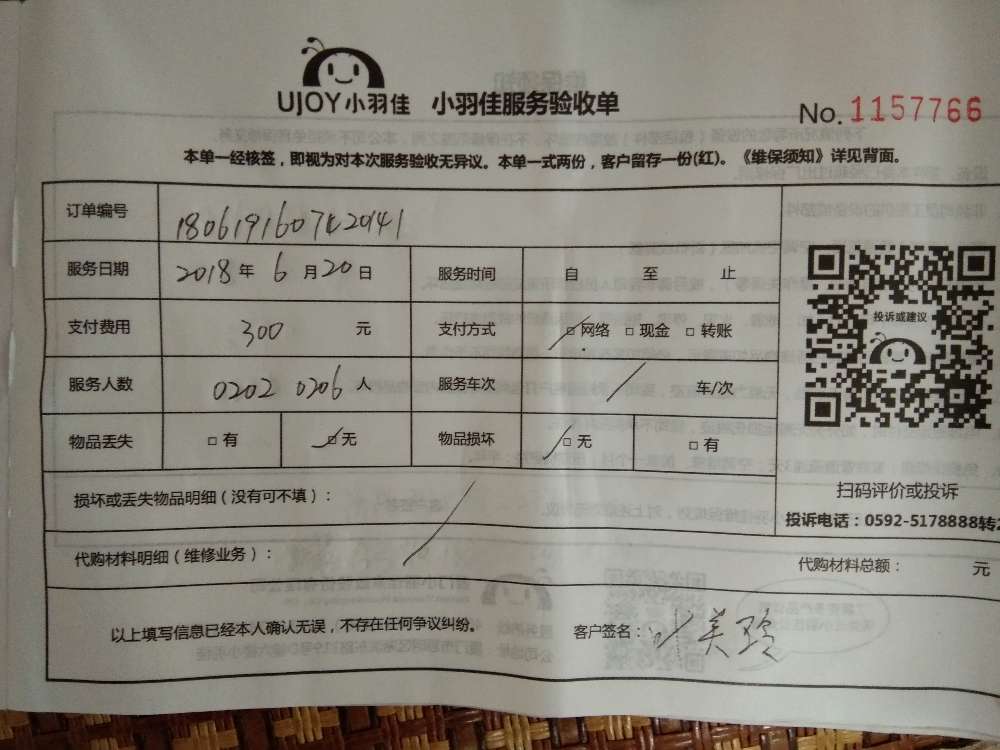 UJOY小羽佳 小羽佳服务验收单
No. 1157766
本单一经核签，即视为对本次服务验收无异议。本单一式两份，客户留存一份(红)。《维保须知》详见背面。
订单编号
服务日期 2018 年 6 月 20 日 服务时间 自 至 止
支付费用 300 元 支付方式 □网络 □现金 □转账
服务人数 0202 0206 人 服务车次 / 车/次
物品丢失 □有 □无 物品损坏 □无 □有
损坏或丢失物品明细（没有可不填）：
代购材料明细（维修业务）：
代购材料总额： 元
以上填写信息已经本人确认无误，不存在任何争议纠纷。 客户签名：
投诉或建议
扫码评价或投诉
投诉电话：0592-5178888转2